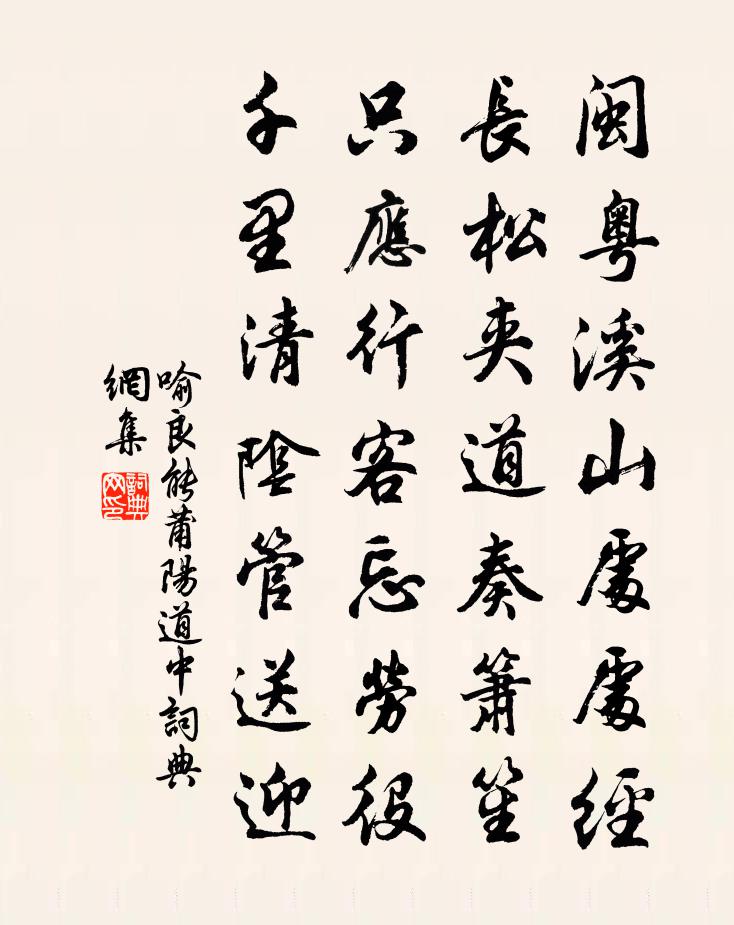 閩粵溪山處處經
長松夾道奏簫笙
只應行客忘勞役
千里清陰管送迎
喻良能莆陽道中詞典
網集
詞典
网印